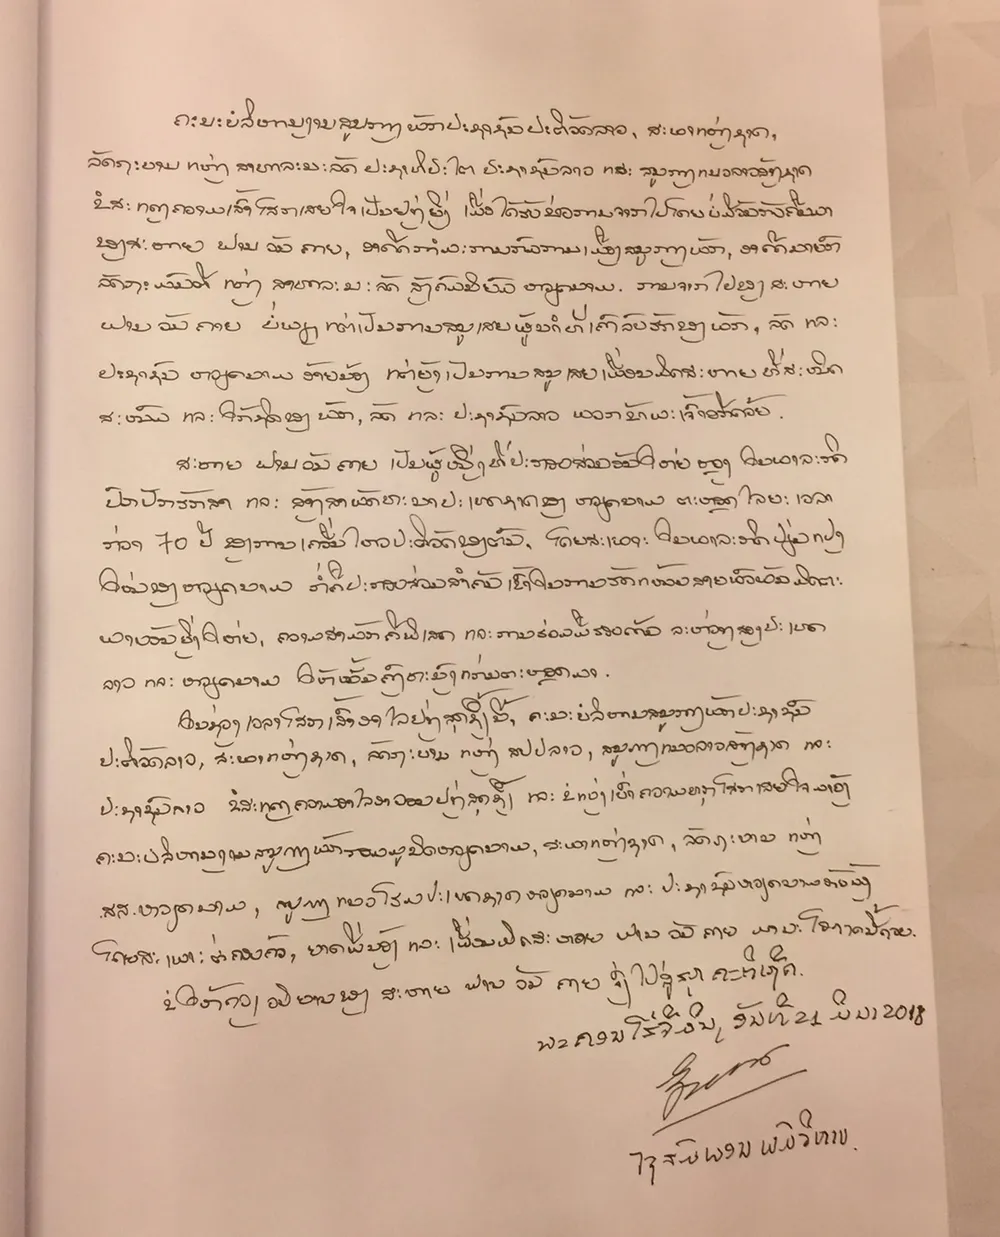 ຄະນະບໍລິຫານງານສູນກາງພັກປະຊາຊົນປະຕິວັດລາວ, ສະພາແຫ່ງຊາດ,
ລັດຖະບານ ແຫ່ງ ສາທາລະນະລັດ ປະຊາທິປະໄຕ ປະຊາຊົນລາວ ແລະ ສູນກາງແນວລາວສ້າງຊາດ
ຂໍສະແດງຄວາມເສົ້າໂສກເສຍໃຈເປັນຢ່າງຍິ່ງ ເມື່ອໄດ້ຮັບຂ່າວການຈາກໄປໂດຍບໍ່ມີວັນກັບຄືນມາ
ຂອງສະຫາຍ ຟານ ວັນ ຄາຍ, ອາດີດກຳມະການກົມການເມືອງສູນກາງພັກ, ອາດີດນາຍົກ
ລັດຖະມົນຕີ ແຫ່ງ ສາທາລະນະລັດ ສັງຄົມນິຍົມ ຫວຽດນາມ. ການຈາກໄປຂອງ ສະຫາຍ
ຟານ ວັນ ຄາຍ ບໍ່ພຽງແຕ່ເປັນການສູນເສຍຜູ້ນຳທີ່ເຄົາລົບຮັກຂອງ ພັກ, ລັດ ແລະ
ປະຊາຊົນ ຫວຽດນາມ ອ້າຍນ້ອງ ແຕ່ຍັງເປັນການສູນເສຍເພື່ອນມິດສະຫາຍ ທີ່ສະໜິດ
ສະໜົມ ແລະ ໃກ້ຊິດຂອງ ພັກ, ລັດ ແລະ ປະຊາຊົນລາວ ພວກຂ້າພະເຈົ້າອີກດ້ວຍ.
ສະຫາຍ ຟານ ວັນ ຄາຍ ເປັນຜູ້ໜຶ່ງທີ່ປະກອບສ່ວນອັນໃຫຍ່ຫຼວງ ໃນພາລະກິດ
ປົກປັກຮັກສາ ແລະ ສ້າງສາພັດທະນາປະເທດຊາດຂອງ ຫວຽດນາມ ຕະຫຼອດໄລຍະເວລາ
ກວ່າ 70 ປີ ຂອງການເຄື່ອນໄຫວປະຕິວັດຂອງຕົນ, ໂດຍສະເພາະ ໃນພາລະກິດປ່ຽນແປງ
ໃໝ່ຂອງຫວຽດນາມ ກໍ່ຄືປະກອບສ່ວນສຳຄັນເຂົ້າໃນການຮັດແໜ້ນສາຍພົວພັນມິດຕະ
ພາບອັນຍິ່ງໃຫຍ່, ຄວາມສາມັກຄີພິເສດ ແລະ ການຮ່ວມມືຮອບດ້ານ ລະຫວ່າງສອງປະເທດ
ລາວ ແລະ ຫວຽດນາມ ໃຫ້ໝັ້ນຄົງຂະໜົງແກ່ນຕະຫຼອດມາ.
ໃນຊ່ວງເວລາໂສກເສົ້າອາໄລຢ່າງສຸດຊຶ້ງນີ້, ຄະນະບໍລິຫານສູນກາງພັກປະຊາຊົນ
ປະຕິວັດລາວ, ສະພາແຫ່ງຊາດ, ລັດຖະບານ ແຫ່ງ ສປປລາວ, ສູນກາງແນວລາວສ້າງຊາດ ແລະ
ປະຊາຊົນລາວ ຂໍສະແດງຄວາມອາໄລອາວອນຢ່າງສຸດຊຶ້ງ ແລະ ຂໍແບ່ງເບົາຄວາມທຸກໂສກເສຍໃຈມາຍັງ
ຄະນະບໍລິຫານງານສູນກາງພັກກອມມູນິດຫວຽດນາມ, ສະພາແຫ່ງຊາດ, ລັດຖະບານ ແຫ່ງ
ສສ.ຫວຽດນາມ, ສູນກາງແນວໂຮມປະເທດຊາດຫວຽດນາມ ແລະ ປະຊາຊົນຫວຽດນາມອ້າຍນ້ອງ
ໂດຍສະເພາະຕໍ່ຄອບຄົວ, ຍາດພີ່ນ້ອງ ແລະ ເພື່ອນມິດສະຫາຍ ຟານ ວັນ ຄາຍ ມາ ນະ ໂອກາດນີ້ດ້ວຍ.
ຂໍໃຫ້ດວງວິນຍານຂອງ ສະຫາຍ ຟານ ວັນ ຄາຍ ຈົ່ງໄປສູ່ສຸຄະຕິເທີ້ນ.
ນະຄອນໂຮ່ຈີມິນ, ວັນທີ 21 ມີນາ 2018
ໄຊສົມພອນ ພົມວິຫານ.